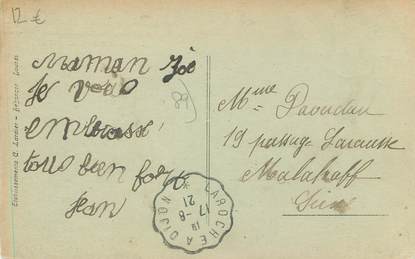 12 €
Maman Zoé
Je vous
embrasse
tous bien fort
Jean
89
Mme
19 passage
Malakoff
Seine
LAROCHE A DIJON
17-8
21
Etablissements C. Lardier - Besançon (Doubs)